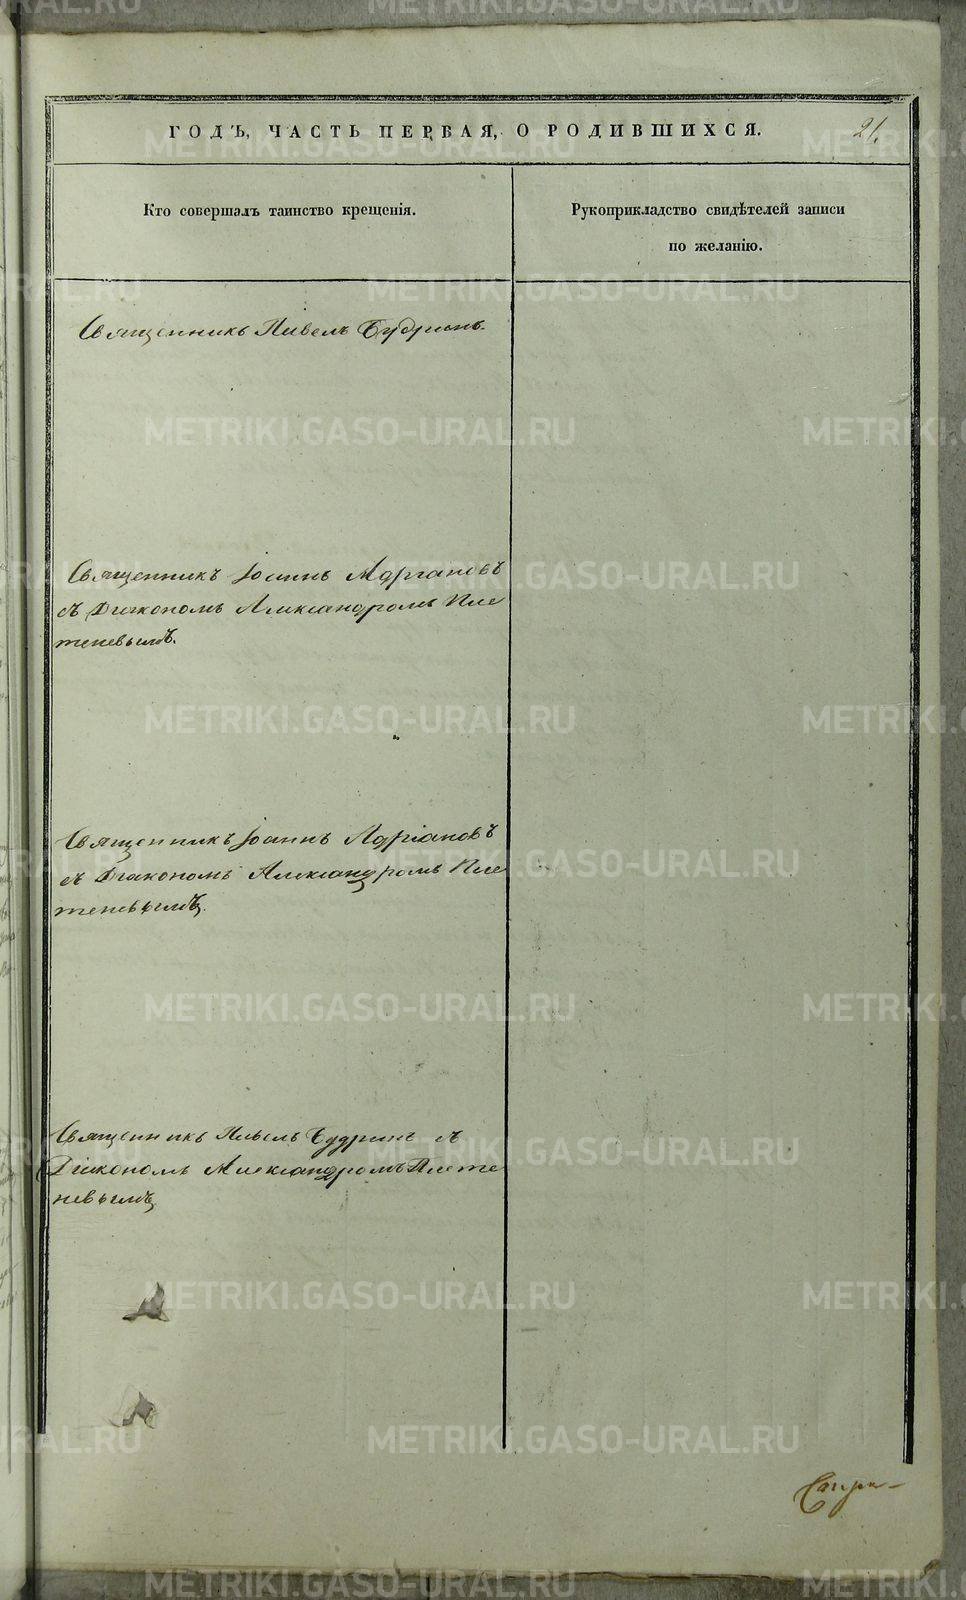 ГОДЪ, ЧАСТЬ ПЕРВАЯ, О РОДИВШИХСЯ.
21.
Кто совершалъ таинство крещенія.
Рукоприкладство свидѣтелей записи
по желанію.
Священникъ Павелъ Будринъ.
Священникъ Іоаннъ Адріановъ
съ Діакономъ Александромъ Пле
теневымъ.
Священникъ Іоаннъ Адріановъ
съ Діакономъ Александромъ Пле
теневымъ.
Священникъ Павелъ Будринъ съ
Діакономъ Александромъ Плете
невымъ
METRIKI.GASO-URAL.RU